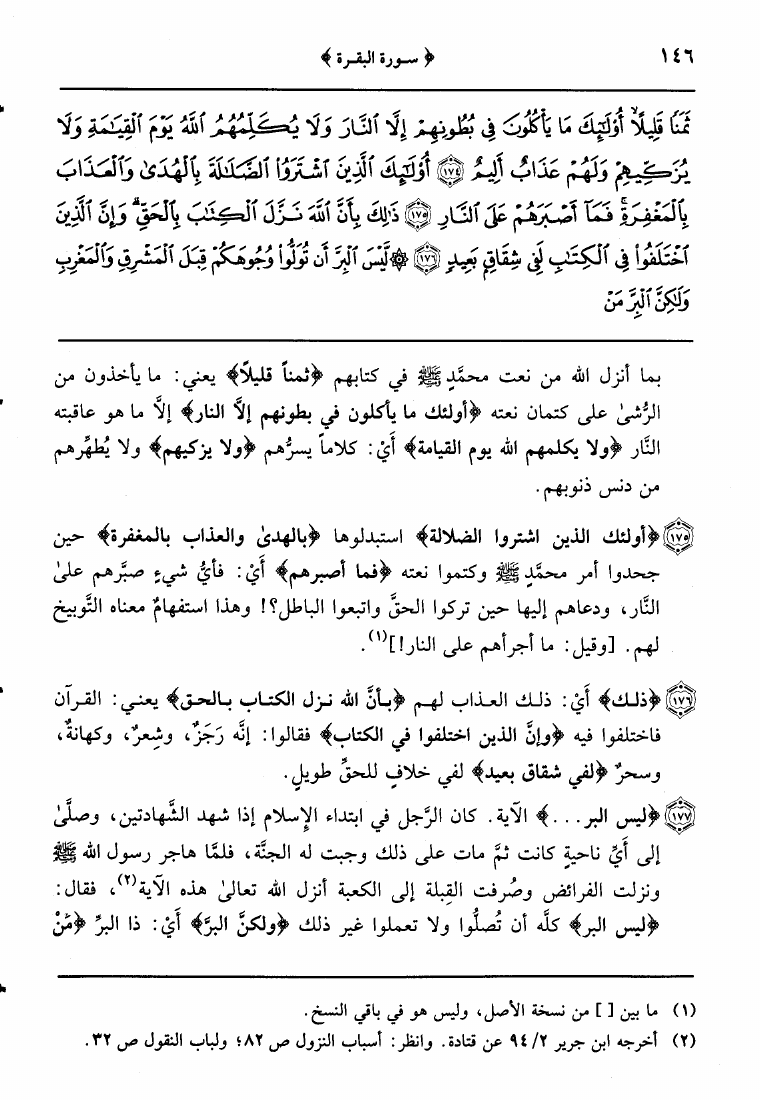 ١٤٦ ﴿ سورة البقرة ﴾
ثَمَنًا قَلِيلًا أُوْلَٰٓئِكَ مَا يَأْكُلُونَ فِي بُطُونِهِمْ إِلَّا ٱلنَّارَ وَلَا يُكَلِّمُهُمُ ٱللَّهُ يَوْمَ ٱلْقِيَٰمَةِ وَلَا
يُزَكِّيهِمْ وَلَهُمْ عَذَابٌ أَلِيمٌ ١٧٤ أُوْلَٰٓئِكَ ٱلَّذِينَ ٱشْتَرَوُا۟ ٱلضَّلَٰلَةَ بِٱلْهُدَىٰ وَٱلْعَذَابَ
بِٱلْمَغْفِرَةِ ۚ فَمَآ أَصْبَرَهُمْ عَلَى ٱلنَّارِ ١٧٥ ذَٰلِكَ بِأَنَّ ٱللَّهَ نَزَّلَ ٱلْكِتَٰبَ بِٱلْحَقِّ ۗ وَإِنَّ ٱلَّذِينَ
ٱخْتَلَفُوا۟ فِي ٱلْكِتَٰبِ لَفِي شِقَاقٍۭ بَعِيدٍ ١٧٦ ۞ لَّيْسَ ٱلْبِرَّ أَن تُوَلُّوا۟ وُجُوهَكُمْ قِبَلَ ٱلْمَشْرِقِ وَٱلْمَغْرِبِ
وَلَٰكِنَّ ٱلْبِرَّ مَنْ
بما أنزل الله من نعت محمَّدٍ ﷺ في كتابهم ﴿ثمناً قليلاً﴾ يعني: ما يأخذون من
الرُّشىٰ على كتمان نعته ﴿أولئك ما يأكلون في بطونهم إلَّا النار﴾ إلَّا ما هو عاقبته
النَّار ﴿ولا يكلمهم الله يوم القيامة﴾ أيْ: كلاماً يسرُّهم ﴿ولا يزكيهم﴾ ولا يُطهِّرهم
من دنس ذنوبهم.
١٧٥ ﴿أولئك الذين اشتروا الضلالة﴾ استبدلوها ﴿بالهدىٰ والعذاب بالمغفرة﴾ حين
جحدوا أمر محمَّدٍ ﷺ وكتموا نعته ﴿فما أصبرهم﴾ أيْ: فأيُّ شيءٍ صبَّرهم علىٰ
النَّار، ودعاهم إليها حين تركوا الحقَّ واتبعوا الباطل؟! وهذا استفهامٌ معناه التَّوبيخ
لهم. [وقيل: ما أجرأهم على النار!](١).
١٧٦ ﴿ذلك﴾ أيْ: ذلك العذاب لهم ﴿بأنَّ الله نزل الكتاب بالحق﴾ يعني: القرآن
فاختلفوا فيه ﴿وإنَّ الذين اختلفوا في الكتاب﴾ فقالوا: إنَّه رَجَزٌ، وشِعرٌ، وكهانةٌ،
وسحرٌ ﴿لفي شقاق بعيد﴾ لفي خلافٍ للحقِّ طويلٍ.
١٧٧ ﴿ليس البر...﴾ الآية. كان الرَّجل في ابتداء الإسلام إذا شهد الشَّهادتين، وصلَّىٰ
إلى أيِّ ناحيةٍ كانت ثمَّ مات على ذلك وجبت له الجنَّة، فلمَّا هاجر رسول الله ﷺ
ونزلت الفرائض وصُرفت القِبلة إلى الكعبة أنزل الله تعالىٰ هذه الآية(٢)، فقال:
﴿ليس البر﴾ كلَّه أن تُصلُّوا ولا تعملوا غير ذلك ﴿ولكنَّ البرَّ﴾ أيْ: ذا البرِّ ﴿مَنْ
(١) ما بين [ ] من نسخة الأصل، وليس هو في باقي النسخ.
(٢) أخرجه ابن جرير ٩٤/٢ عن قتادة. وانظر: أسباب النزول ص ٨٢؛ ولباب النقول ص ٣٢.